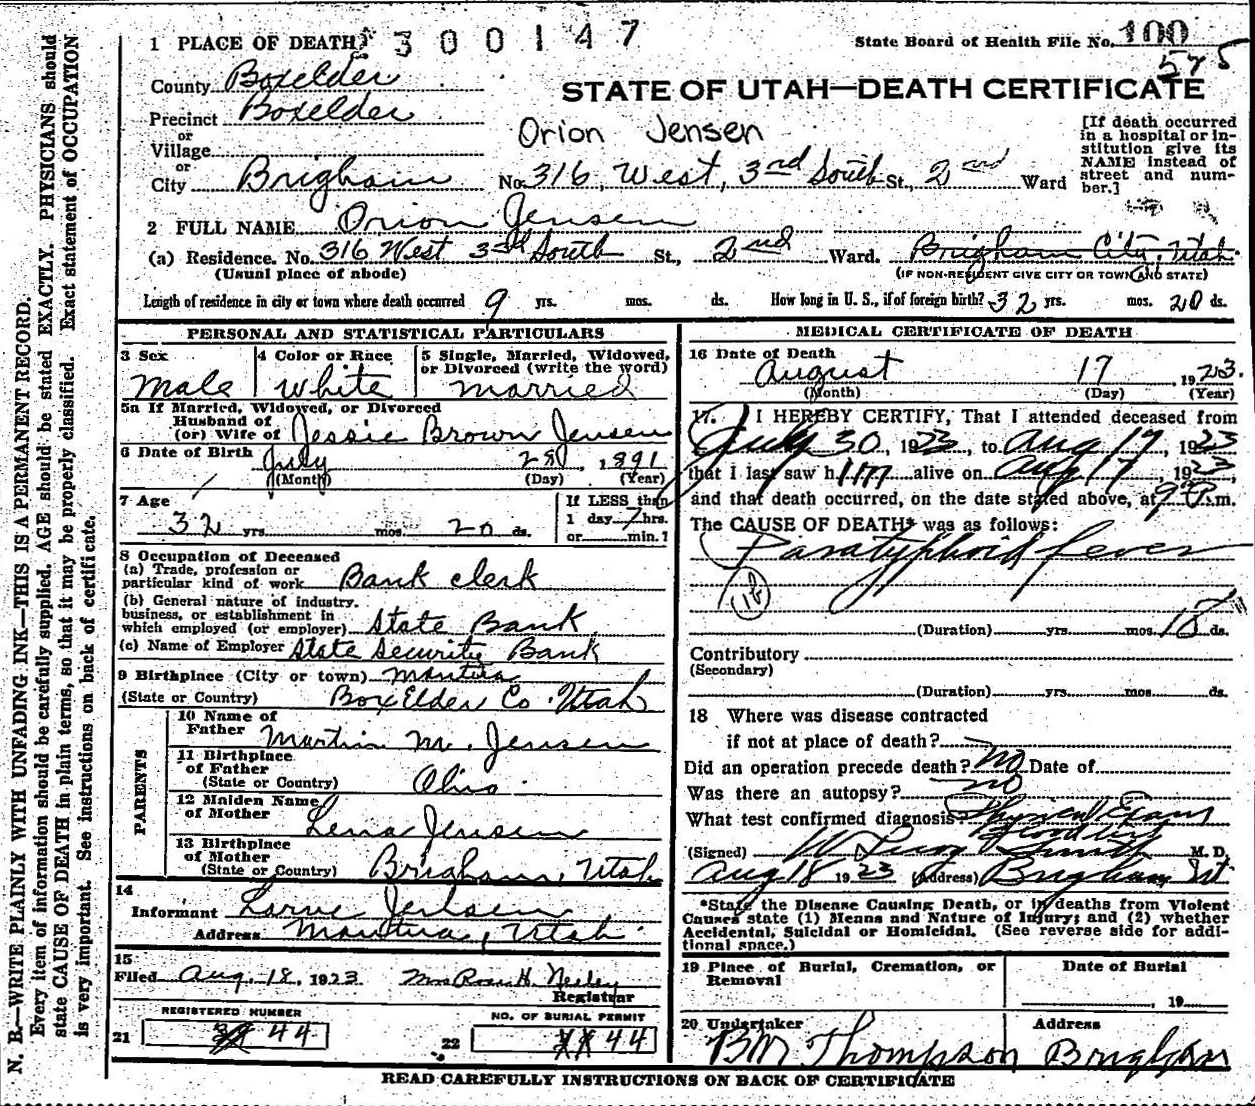 1 PLACE OF DEATH 2300147
State Board of Health File No. 100
575
County Boxelder
STATE OF UTAH—DEATH CERTIFICATE
Precinct Boxelder
or
Village
or
City Brigham
Orion Jensen
No. 316, West, 3rd South St., 2nd Ward
[If death occurred
in a hospital or in-
stitution give its
NAME instead of
street and num-
ber.]
2 FULL NAME Orion Jensen
(a) Residence. No. 316 West 3rd South St., 2nd Ward. Brigham City, Utah.
(Usual place of abode) (IF NON-RESIDENT GIVE CITY OR TOWN AND STATE)
Length of residence in city or town where death occurred 9 yrs. mos. ds. How long in U. S., if of foreign birth? 32 yrs. mos. 20 ds.
PERSONAL AND STATISTICAL PARTICULARS
3 Sex
Male
4 Color or Race
White
5 Single, Married, Widowed,
or Divorced (write the word)
married
5a If Married, Widowed, or Divorced
Husband of
(or) Wife of Jessie Brown Jensen
6 Date of Birth July 28, 1891
(Month) (Day) (Year)
7 Age
32 yrs. mos. 20 ds.
If LESS than
1 day 7 hrs.
or min.?
8 Occupation of Deceased
(a) Trade, profession or
particular kind of work Bank clerk
(b) General nature of industry.
business, or establishment in
which employed (or employer) State Bank
(c) Name of Employer State Security Bank
9 Birthplace (City or town) Mantua
(State or Country) Box Elder Co Utah
PARENTS
10 Name of
Father Martin M. Jensen
11 Birthplace
of Father
(State or Country) Ohio.
12 Maiden Name
of Mother Lena Jensen
13 Birthplace
of Mother
(State or Country) Brigham, Utah
14
Informant Jensen
Address Mantua, Utah.
15
Filed Aug. 18, 1923 Mrs Rose H. Neeley
Registrar
REGISTERED NUMBER
21 44
NO. OF BURIAL PERMIT
22 44
MEDICAL CERTIFICATE OF DEATH
16 Date of Death
August 17, 1923.
(Month) (Day) (Year)
17. I HEREBY CERTIFY, That I attended deceased from
July 30, 1923, to Aug 17, 1923
that I last saw him alive on Aug 17, 1923,
and that death occurred, on the date stated above, at 9 P.m.
The CAUSE OF DEATH* was as follows:
Paratyphoid fever
(1b)
(Duration) yrs. mos. 18 ds.
Contributory
(Secondary)
(Duration) yrs. mos. ds.
18 Where was disease contracted
if not at place of death?
Did an operation precede death? no Date of
Was there an autopsy? no
What test confirmed diagnosis? Physical Exam
Blood test
(Signed) W Smith M. D.
Aug 18 1923 (Address) Brigham Ut
*State the Disease Causing Death, or in deaths from Violent
Causes state (1) Means and Nature of Injury; and (2) whether
Accidental, Suicidal or Homicidal. (See reverse side for addi-
tional space.)
19 Place of Burial, Cremation, or
Removal
Date of Burial
, 19
20 Undertaker Address
BM Thompson Brigham
READ CAREFULLY INSTRUCTIONS ON BACK OF CERTIFICATE
N. B.—WRITE PLAINLY WITH UNFADING INK—THIS IS A PERMANENT RECORD.
Every item of information should be carefully supplied. AGE should be stated EXACTLY. PHYSICIANS should
state CAUSE OF DEATH in plain terms, so that it may be properly classified. Exact statement of OCCUPATION
is very important. See instructions on back of certificate.